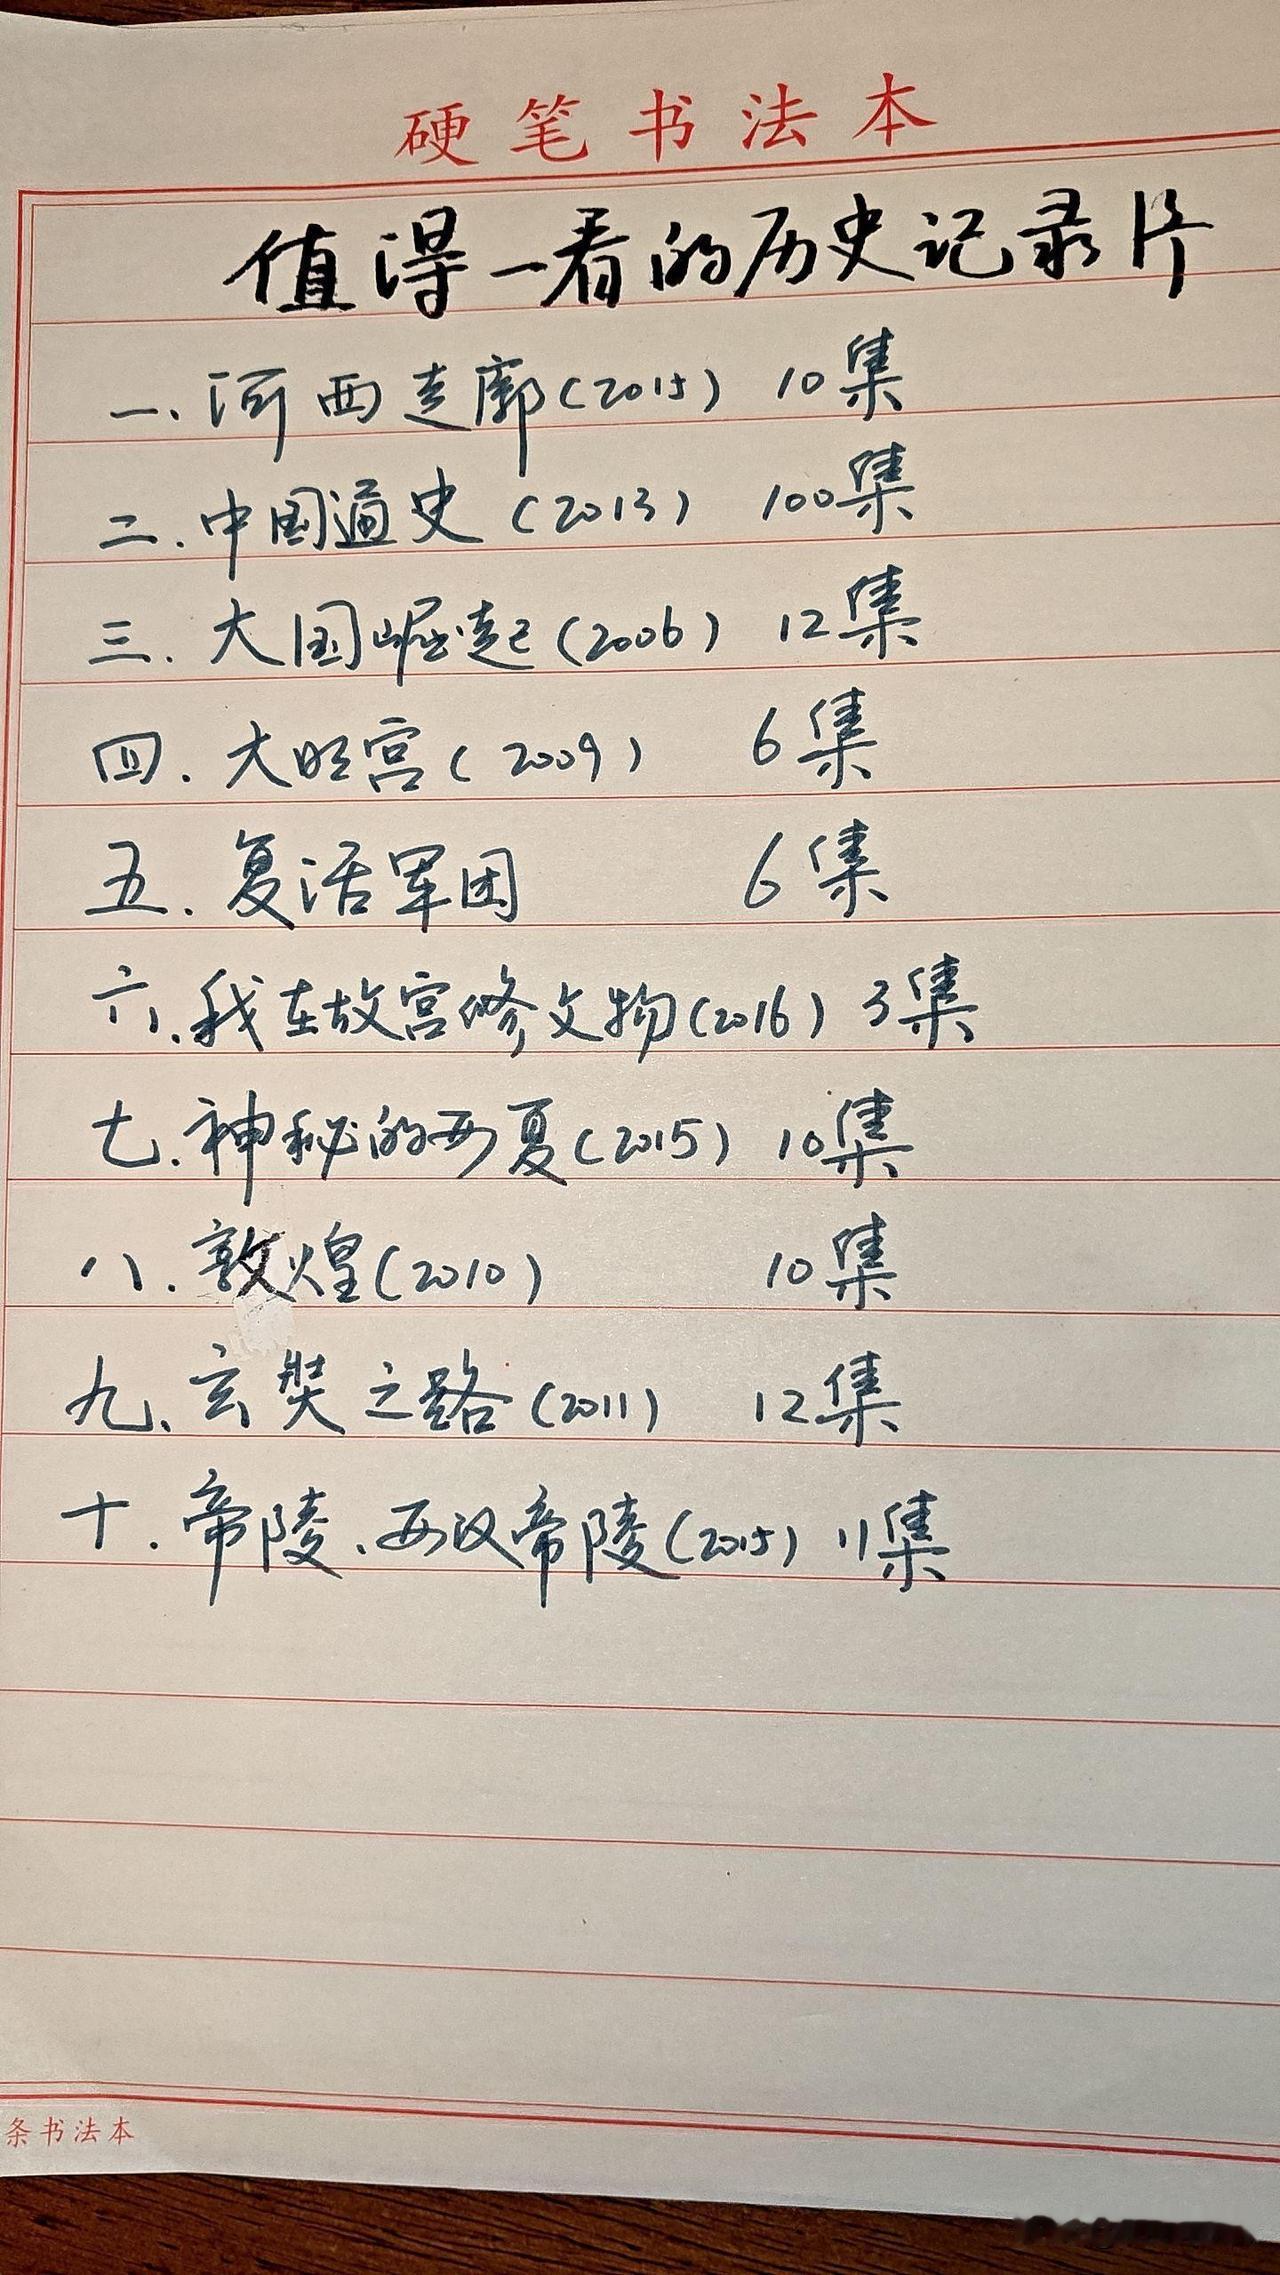 硬笔书法本
值得一看的历史记录片
一、河西走廊(2015) 10集
二.中国通史(2013) 100集
三.大国崛起(2006) 12集
四.大明宫(2009) 6集
五.复活军团 6集
六.我在故宫修文物(2016) 3集
七.神秘的西夏(2015) 10集
八.敦煌(2010) 10集
九、玄奘之路(2011) 12集
十.帝陵、西汉帝陵(2015) 11集
条书法本